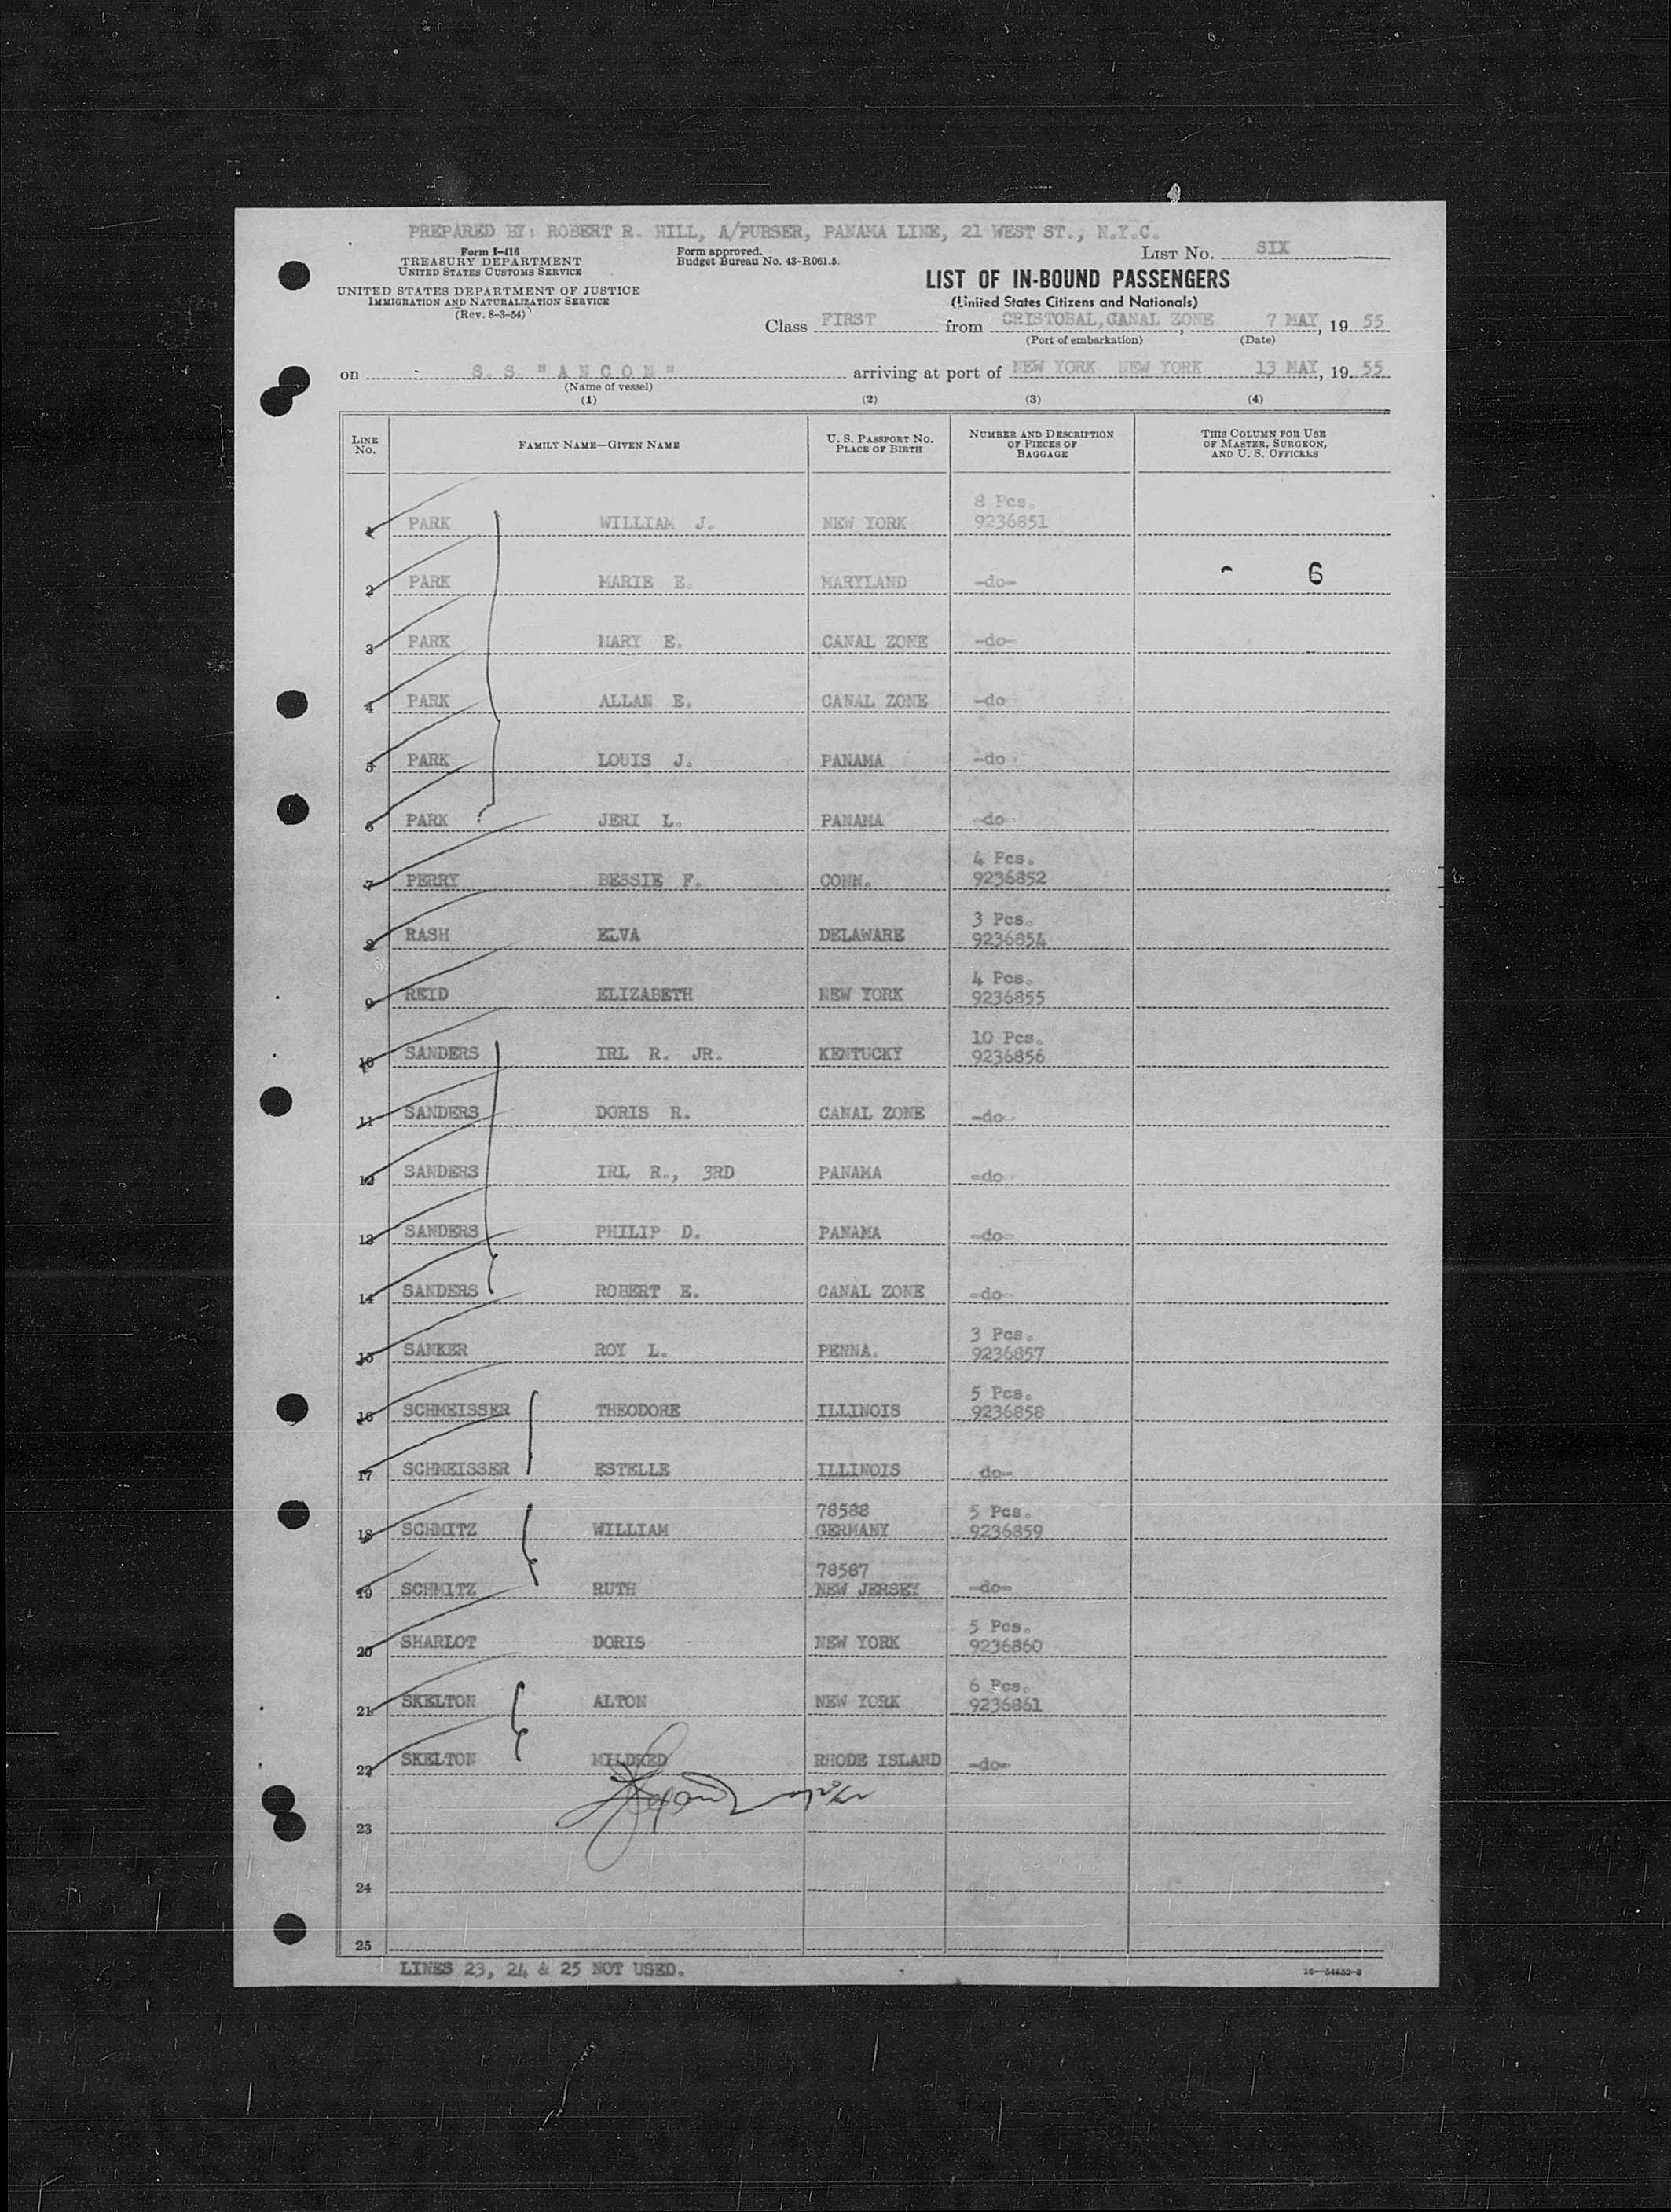 PREPARED BY: ROBERT R. HILL, A/PURSER, PANAMA LINE, 21 WEST ST., N.Y.C.
Form I-416
TREASURY DEPARTMENT
UNITED STATES CUSTOMS SERVICE
UNITED STATES DEPARTMENT OF JUSTICE
IMMIGRATION AND NATURALIZATION SERVICE
(Rev. 8-3-54)
Form approved.
Budget Bureau No. 43-R061.5.
LIST NO. SIX
LIST OF IN-BOUND PASSENGERS
(United States Citizens and Nationals)
Class FIRST from CRISTOBAL, CANAL ZONE, 7 MAY, 19 55
(Port of embarkation) (Date)
on S. S. "A N C O N" arriving at port of NEW YORK NEW YORK 13 MAY, 19. 55
(Name of vessel)
(1) (2) (3) (4)
LINE NO. FAMILY NAME—GIVEN NAME U. S. PASSPORT NO. PLACE OF BIRTH NUMBER AND DESCRIPTION OF PIECES OF BAGGAGE THIS COLUMN FOR USE OF MASTER, SURGEON, AND U. S. OFFICERS
8 Pcs.
1 PARK WILLIAM J. NEW YORK 9236851
2 PARK MARIE E. MARYLAND -do- - 6
3 PARK MARY E. CANAL ZONE -do-
4 PARK ALLAN E. CANAL ZONE -do
5 PARK LOUIS J. PANAMA -do
6 PARK JERI L. PANAMA -do-
4 Pcs.
7 PERRY BESSIE F. CONN. 9236852
3 Pcs.
8 RASH ELVA DELAWARE 9236854
4 Pcs.
9 REID ELIZABETH NEW YORK 9236855
10 Pcs.
10 SANDERS IRL R. JR. KENTUCKY 9236856
11 SANDERS DORIS R. CANAL ZONE -do-
12 SANDERS IRL R., 3RD PANAMA -do-
13 SANDERS PHILIP D. PANAMA -do-
14 SANDERS ROBERT E. CANAL ZONE -do-
3 Pcs.
15 SANKER ROY L. PENNA. 9236857
5 Pcs.
16 SCHMEISSER THEODORE ILLINOIS 9236858
17 SCHMEISSER ESTELLE ILLINOIS do-
78588 5 Pcs.
18 SCHMITZ WILLIAM GERMANY 9236859
78587
19 SCHMITZ RUTH NEW JERSEY -do-
5 Pcs.
20 SHARLOT DORIS NEW YORK 9236860
6 Pcs.
21 SKELTON ALTON NEW YORK 9236861
22 SKELTON MILDRED RHODE ISLAND -do-
23
24
25
LINES 23, 24 & 25 NOT USED.